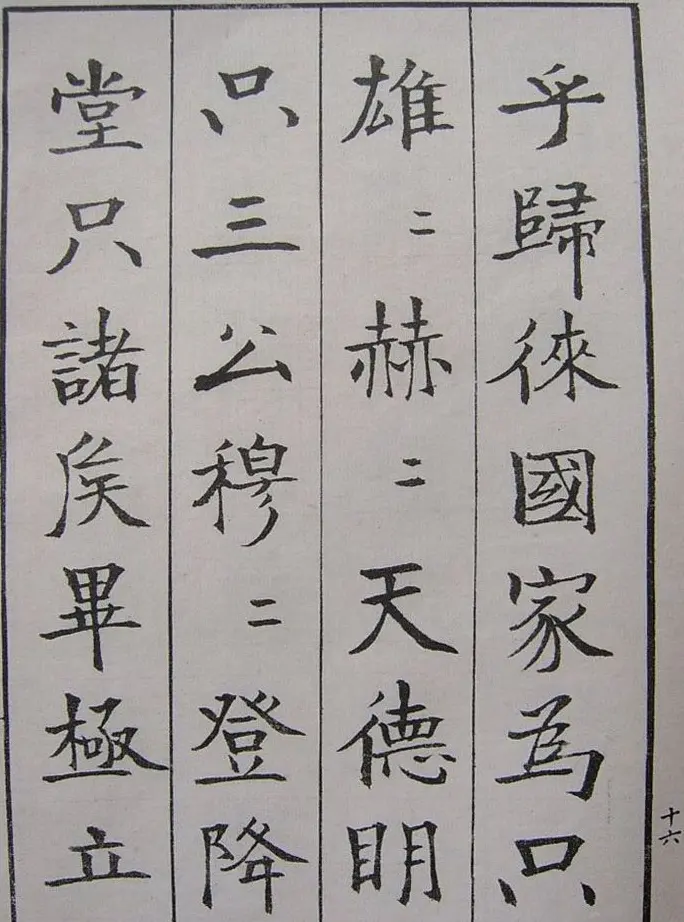 乎歸徠國家為只
雄〻赫〻天德明
只三公穆〻登降
堂只諸矦畢極立
十六